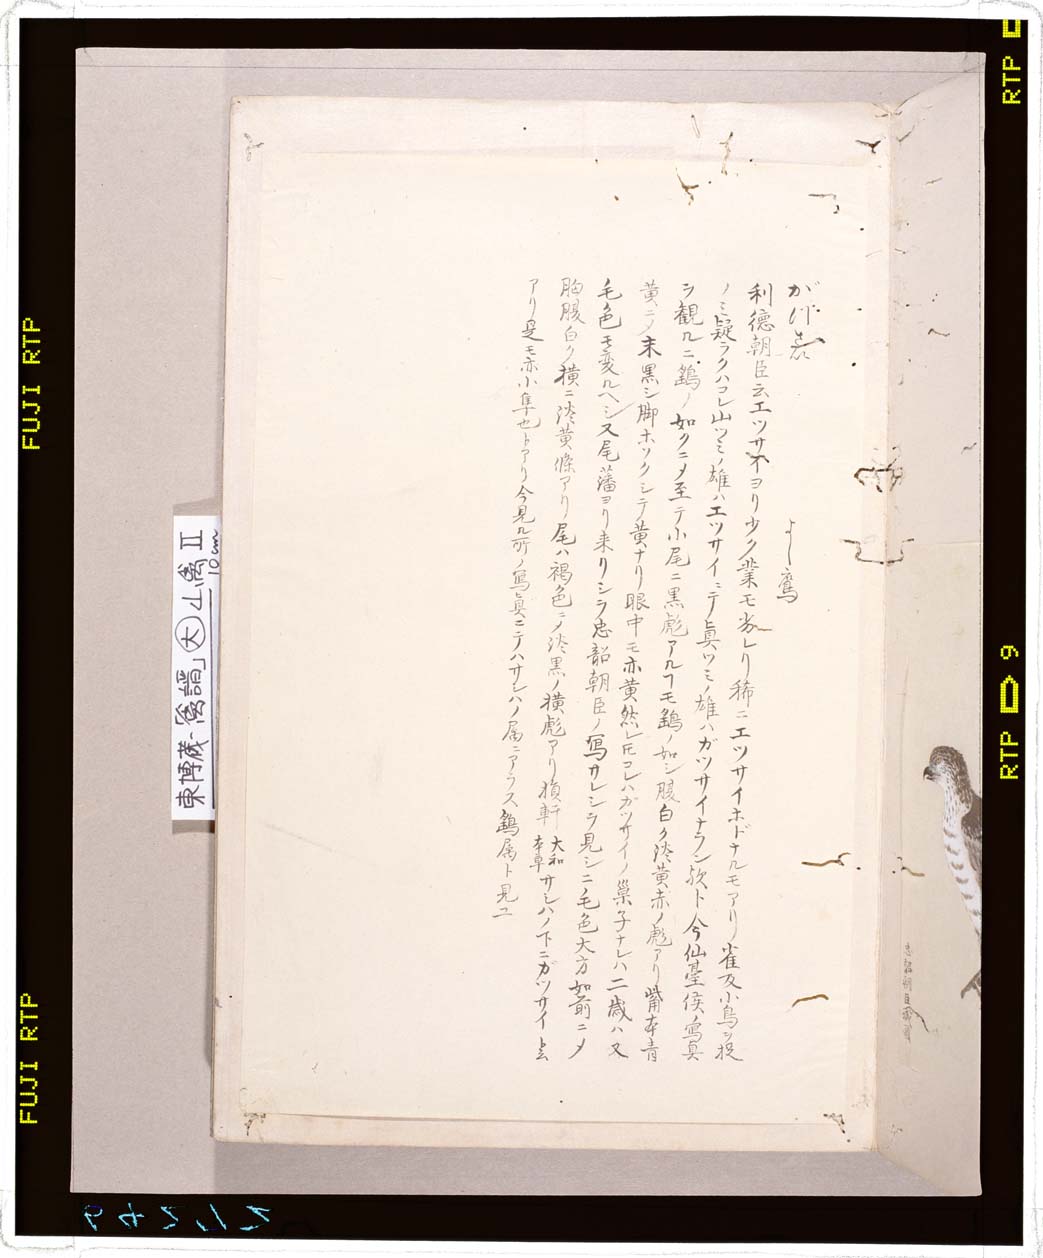 よし鷹
利徳朝臣云エツサイヨリ少ク業モ劣レリ稀ニエツサイホドナルモアリ雀及小鳥ヲ捉
ノミ疑ラクハコレ山ツミノ雄ハエツサイニテ真ツミノ雄ハガツサイナラン歟ト今仙臺侯ノ寫真
ヲ観ルニ鷂ノ如クニメ至テ小尾ニ黒彪アルヿモ鷂ノ如シ腹白ク淡黄赤ノ彪アリ觜本青
黄ニメ末黒シ脚ホソクシテ黄ナリ眼中モ亦黄然レ𪜈コレハガツサイノ巣子ナレハ二歳ハ又
毛色モ変ルヘシ又尾藩ヨリ来リシヲ忠韶朝臣ノ寫サレシヲ見シニ毛色大方如前ニメ
胸腹白ク横ニ淡黄條アリ尾ハ褐色ニメ淡黒ノ横彪アリ 大和本草 サシハノ下ニガツサイト云
アリ是モ亦小隼也トアリ今見ル所ノ寫真ニテハサシハノ属ニアラス鷂属ト見ユ
忠韶朝臣
東博蔵「禽譜」大 山禽 II
10cm
FUJI RTP
FUJI RTP
RTP
RTP 9